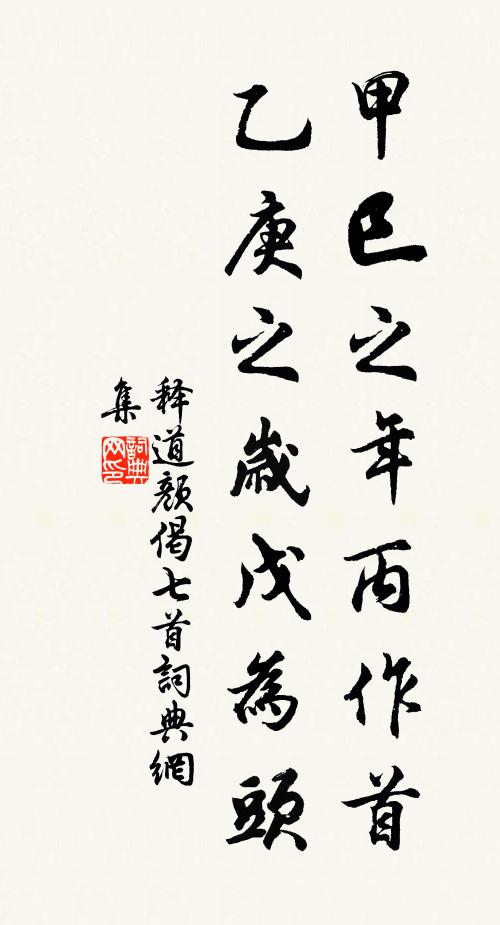 甲巳之年丙作首
乙庚之歲戊為頭
释道顏偈七首詞典網
集
詞典
网印